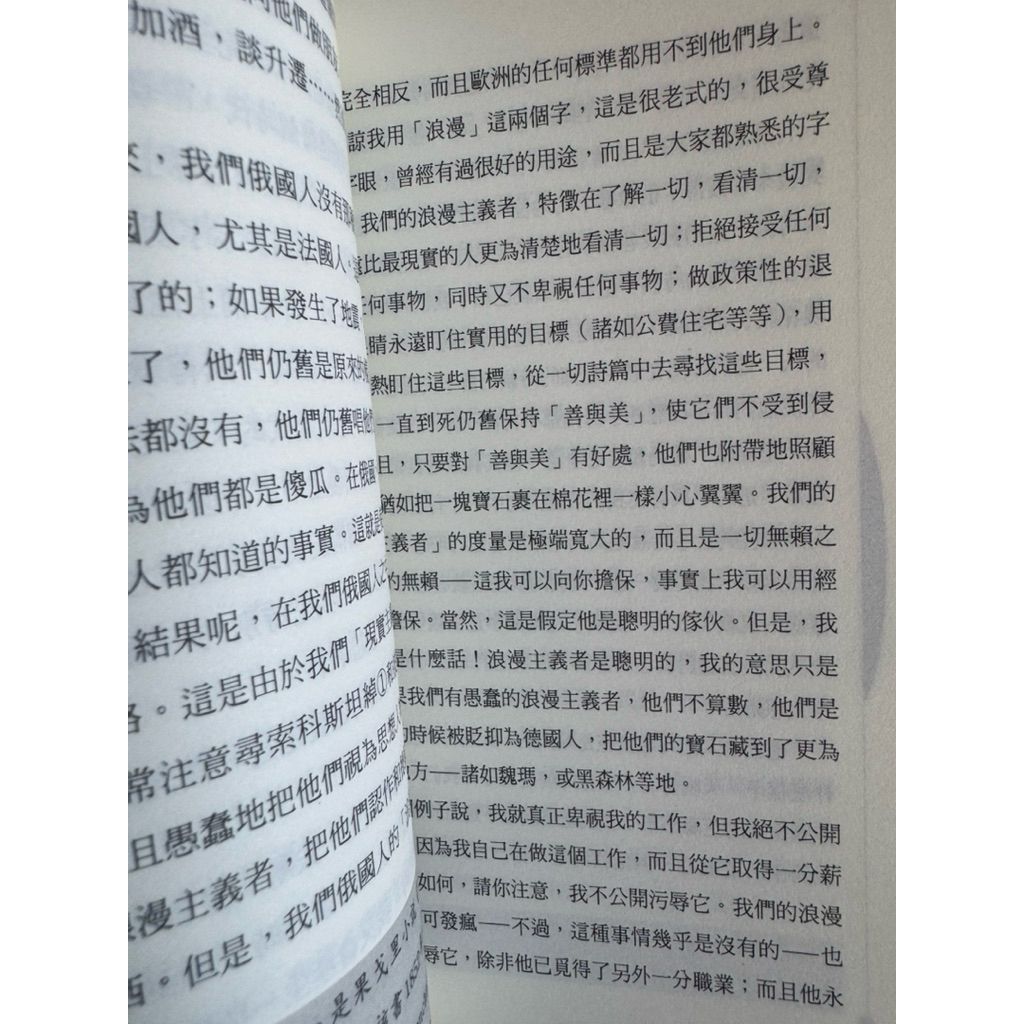 們他們做朋
加酒，談升遷……
，我們俄國人沒有
國人，尤其是法國人
了的；如果發生了地震
了，他們仍舊是原來的
都沒有，他們仍舊唱他
為他們都是傻瓜。在俄國
人都知道的事實。這就是
結果呢，在我們俄國人之
。這是由於我們「現實主
常注意尋索科斯坦綽①和
且愚蠢地把他們視為思想
浪漫主義者，把他們認作和
。但是，我們俄國人的「浪
是果戈里小說
該書185
完全相反，而且歐洲的任何標準都用不到他們身上。
諒我用「浪漫」這兩個字，這是很老式的，很受尊
字眼，曾經有過很好的用途，而且是大家都熟悉的字
我們的浪漫主義者，特徵在了解一切，看清一切，
遠比最現實的人更為清楚地看清一切；拒絕接受任何
任何事物，同時又不卑視任何事物；做政策性的退
睛永遠盯住實用的目標（諸如公費住宅等等），用
熱盯住這些目標，從一切詩篇中去尋找這些目標，
一直到死仍舊保持「善與美」，使它們不受到侵
且，只要對「善與美」有好處，他們也附帶地照顧
猶如把一塊寶石裹在棉花裡一樣小心翼翼。我們的
主義者」的度量是極端寬大的，而且是一切無賴之
的無賴——這我可以向你擔保，事實上我可以用經
擔保。當然，這是假定他是聰明的傢伙。但是，我
是什麼話！浪漫主義者是聰明的，我的意思只是
果我們有愚蠢的浪漫主義者，他們不算數，他們是
的時候被貶抑為德國人，把他們的寶石藏到了更為
地方——諸如魏瑪，或黑森林等地。
個例子說，我就真正卑視我的工作，但我絕不公開
因為我自己在做這個工作，而且從它取得一分薪
如何，請你注意，我不公開污辱它。我們的浪漫
可發瘋——不過，這種事情幾乎是沒有的——也
辱它，除非他已覓得了另外一分職業；而且他永